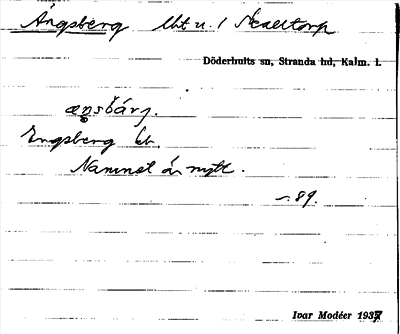 Ängsberg lht u. 1
Döderhults sn, Stranda hd, Kalm. l.
Engsberg kb.
Namnet är nytt.
— 89.
Ivar Modéer 1937